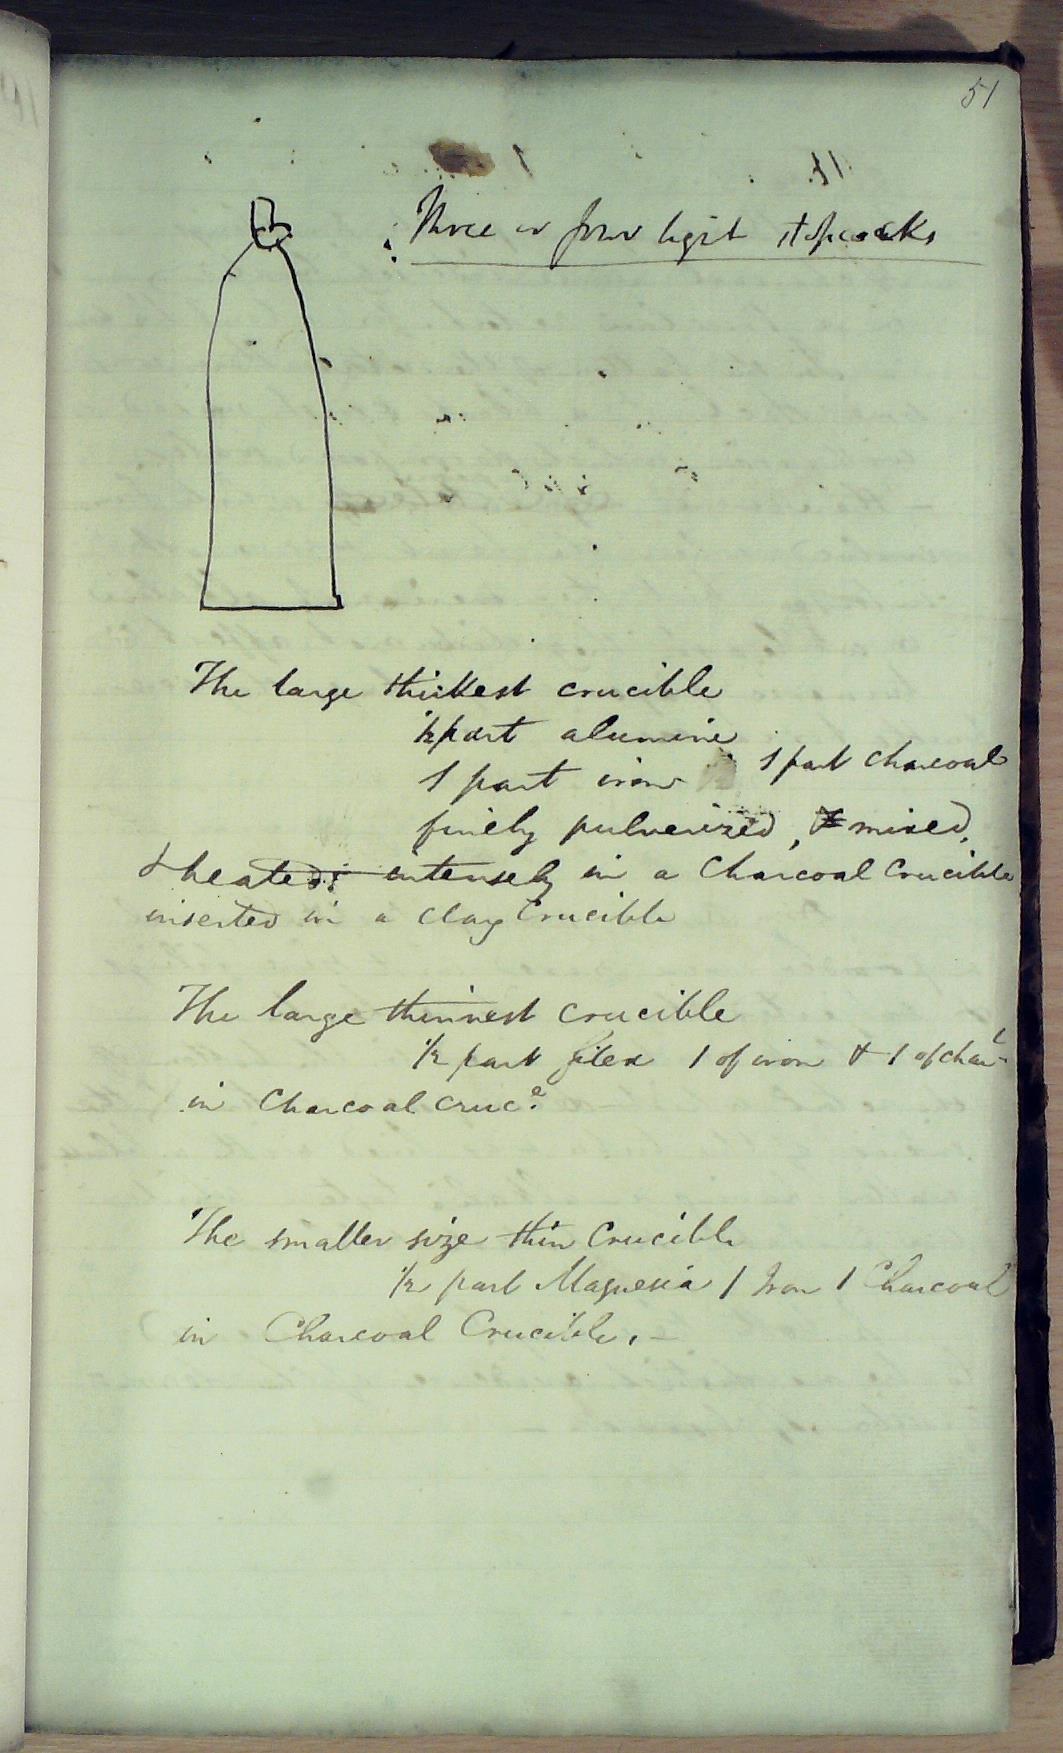 51
Three or four light stopcocks
The large thickest crucible
½ part alumine
1 part iron 1 part charcoal
finely pulverized, & mixed,
& heated intensely in a Charcoal Crucible
inserted in a clay Crucible
The large thinnest crucible
½ part silex 1 of iron & 1 of charl
in Charcoal cruce.
The smaller size thin Crucible
½ part Magnesia 1 Iron 1 Charcoal
in Charcoal Crucible. –